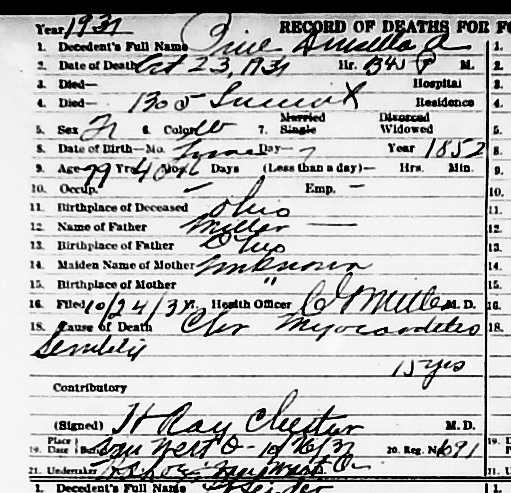 Year 1931 RECORD OF DEATHS FOR FO
1. Decedent's Full Name Price Drusilla A 1.
2. Date of Death Oct 23, 1931 Hr. P M. 2.
3. Died— Hospital 3.
4. Died— 1305 Residence 4.
5. Sex F 6. Color W 7. Married Single Divorced Widowed 5.
8. Date of Birth—Mo. June Day— 7 Year 1852 8.
9. Age— 79 Yrs. 4 Mo. 16 Days (Less than a day)— Hrs. Min. 9.
10. Occup. – Emp. – 10.
11. Birthplace of Deceased Ohio 11.
12. Name of Father Miller — 12.
13. Birthplace of Father Ohio 13.
14. Maiden Name of Mother Unknown 14.
15. Birthplace of Mother " 15.
16. Filed 10/24/31 Health Officer M. D. 16.
18. Cause of Death Chr Myocarditis 18.
Senility
15 yrs
Contributory
(Signed) H Ray Chester M. D.
19. Place Date Burial Van Wert O - 10/26/31 20. Reg. No. 1691 19.
21. Undertaker Van Wert O. 21.
1. Decedent's Full Name 1.